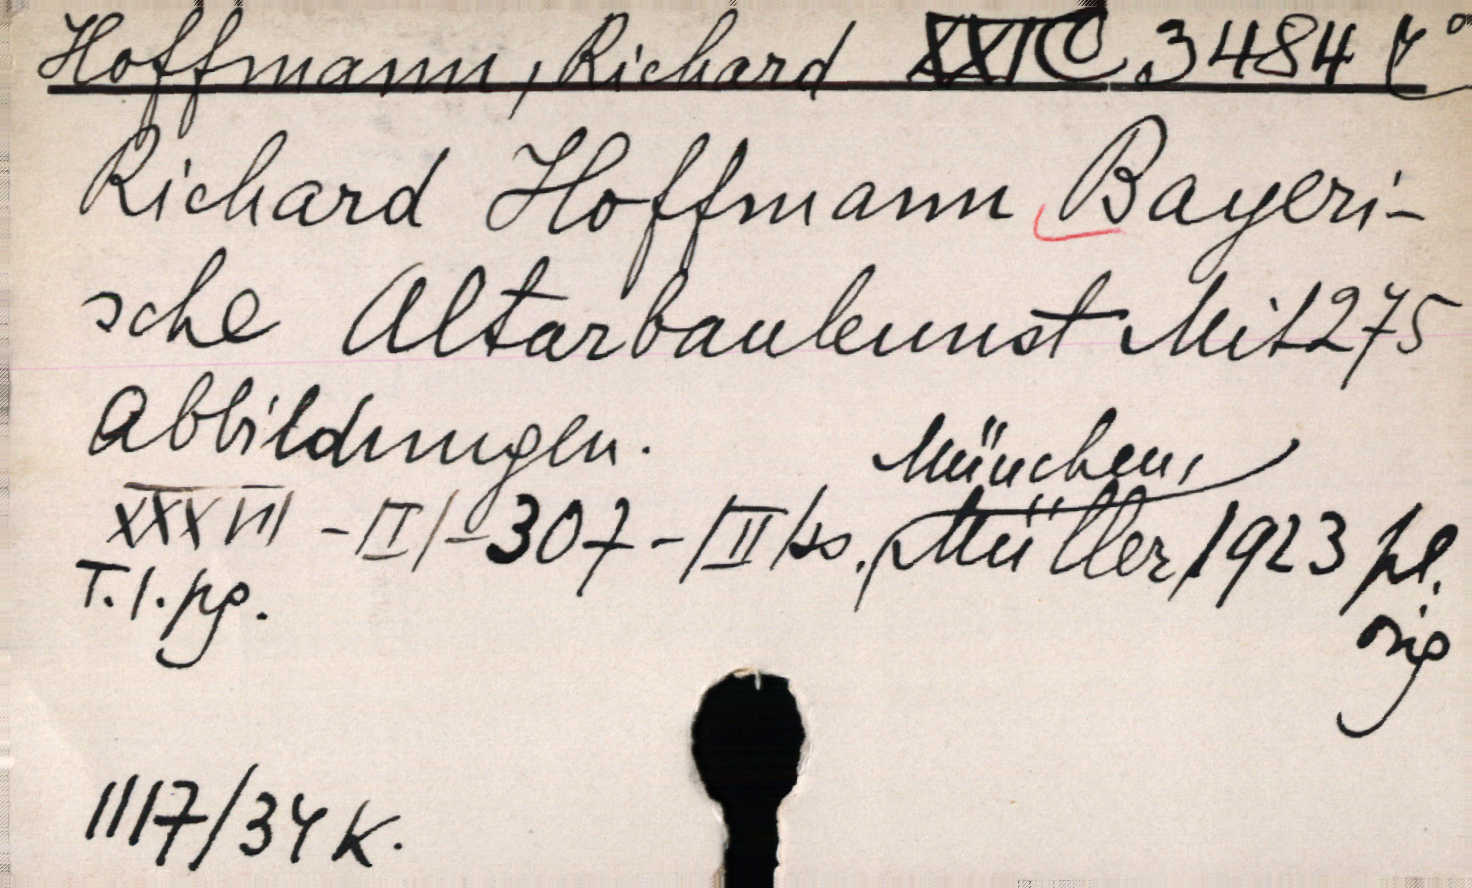 Hoffmann, Richard XXIC. 3484 4°
Richard Hoffmann Bayeri-
sche Altarbaukunst Mit 275
Abbildungen. München,
XXXVII - |I| - 307 - |II| ss. Müller, 1923 pl.
T. 1. pg. orig
1117/34 K.